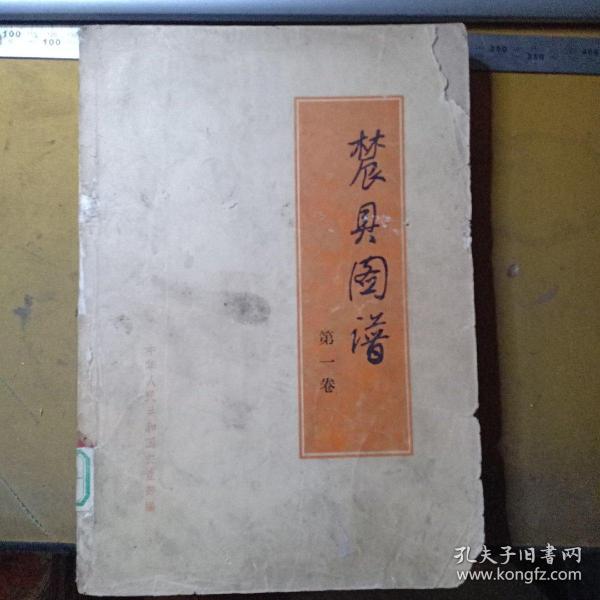 農具图谱
第一卷
中华人民共和国农业部编
孔夫子旧书网
www.kongfz.com
100